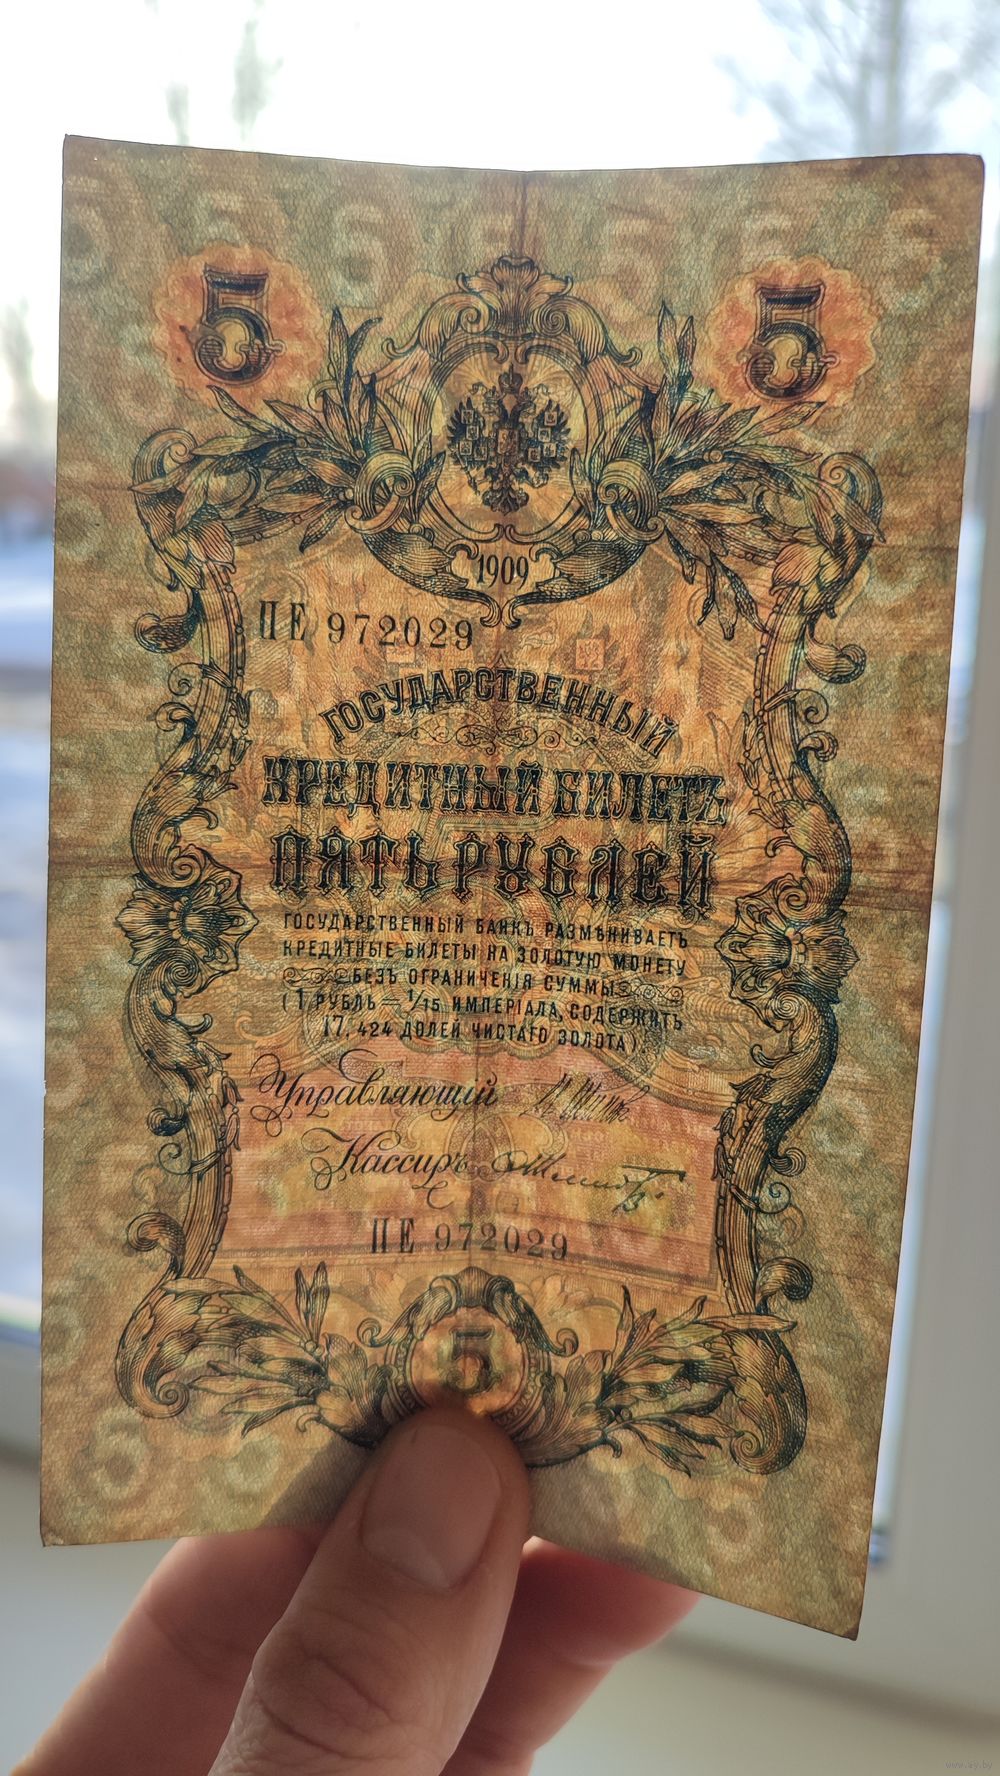 5 5
1909
ПЕ 972029
ГОСУДАРСТВЕННЫЙ
КРЕДИТНЫЙ БИЛЕТЪ
ПЯТЬ РУБЛЕЙ
ГОСУДАРСТВЕННЫЙ БАНКЪ РАЗМѢНИВАЕТЪ
КРЕДИТНЫЕ БИЛЕТЫ НА ЗОЛОТУЮ МОНЕТУ
БЕЗЪ ОГРАНИЧЕНІЯ СУММЫ
(1 РУБЛЬ = 1/15 ИМПЕРІАЛА, СОДЕРЖИТЪ
17,424 ДОЛЕЙ ЧИСТАГО ЗОЛОТА).
Управляющій
Кассиръ
ПЕ 972029
5
www.ay.by